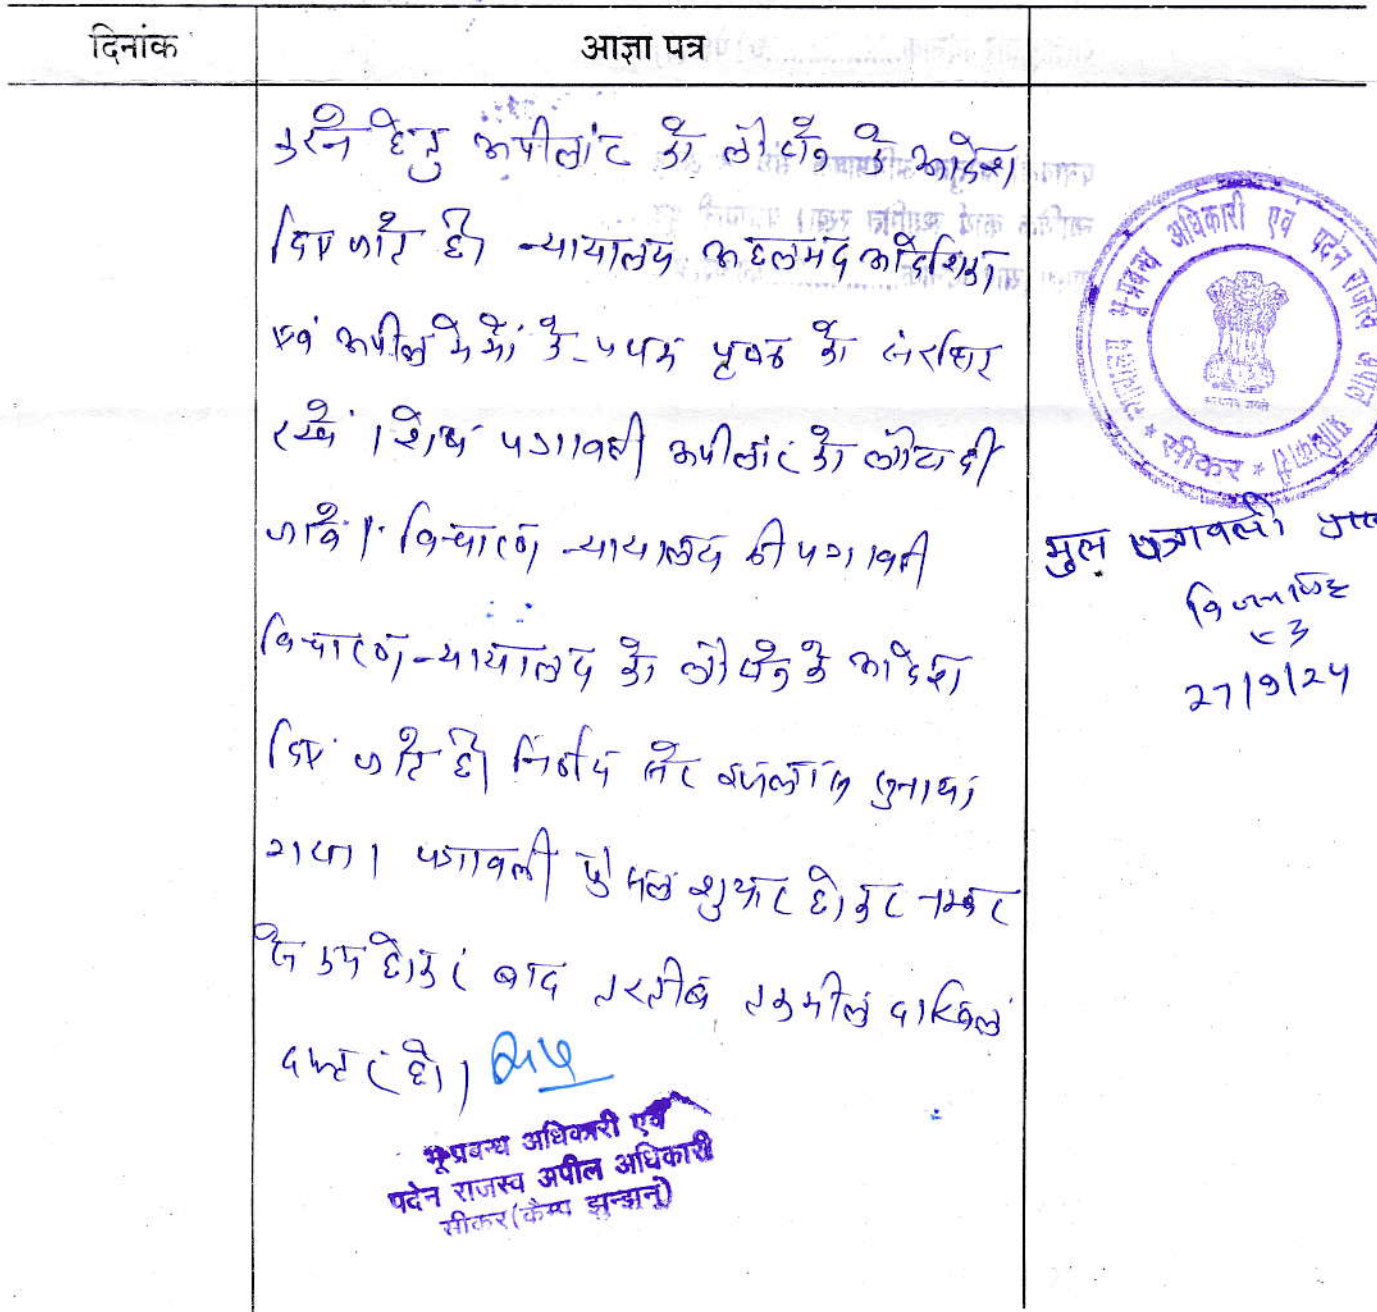 दिनांक
आज्ञा पत्र
करने हेतु अपीलांट को लौटाने के आदेश
दिए जाते है। न्यायालय अहलमद आदेशिका
एवं अपील मेमों के प्रथम पृष्ठ को संरक्षित
रखें । शेष पत्रावली अपीलांट को लौटा दी
जावे । विचारण न्यायालय की पत्रावली
विचारण न्यायालय को लौटाने के आदेश
दिए जाते है। निर्णय सरे इजलास सुनाया
गया। पत्रावली फैसल शुमार होकर नम्बर
से कम होकर बाद तरतीब तकमील दाखिल
दफ्तर हो।
भू-प्रबन्ध अधिकारी एवं
पदेन राजस्व अपील अधिकारी
सीकर(कैम्प झुन्झुनू)
न्यायालय भू-प्रबन्ध अधिकारी एवं पदेन राजस्व अपील अधिकारी
* सीकर *
मुल पत्रावली
27/9/24